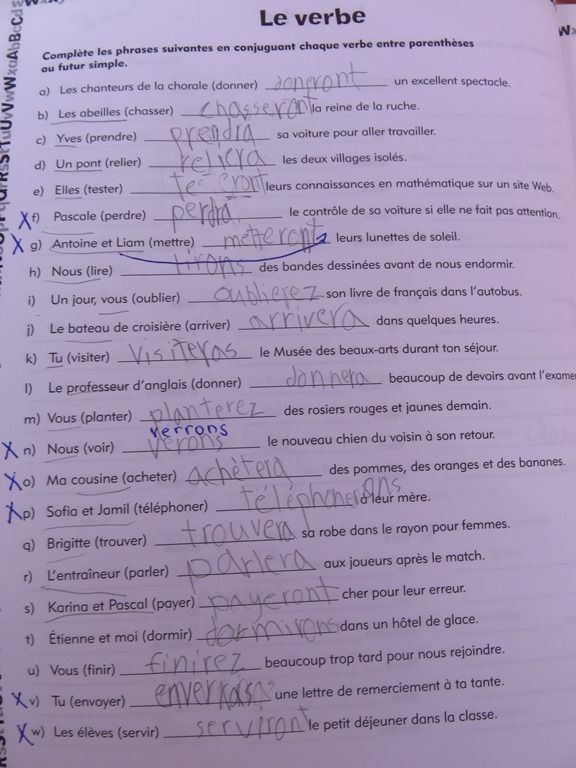 Le verbe
Complète les phrases suivantes en conjuguant chaque verbe entre parenthèses
au futur simple.
a) Les chanteurs de la chorale (donner) donneront un excellent spectacle.
b) Les abeilles (chasser) chasseront la reine de la ruche.
c) Yves (prendre) prendra sa voiture pour aller travailler.
d) Un pont (relier) reliera les deux villages isolés.
e) Elles (tester) leurs connaissances en mathématique sur un site Web.
X f) Pascale (perdre) perdra le contrôle de sa voiture si elle ne fait pas attention.
X g) Antoine et Liam (mettre) metteront leurs lunettes de soleil.
h) Nous (lire) lirons des bandes dessinées avant de nous endormir.
i) Un jour, vous (oublier) oublierez son livre de français dans l'autobus.
j) Le bateau de croisière (arriver) arrivera dans quelques heures.
k) Tu (visiter) visiteras le Musée des beaux-arts durant ton séjour.
l) Le professeur d'anglais (donner) donnera beaucoup de devoirs avant l'exame
m) Vous (planter) planterez des rosiers rouges et jaunes demain.
verrons
X n) Nous (voir) verons le nouveau chien du voisin à son retour.
X o) Ma cousine (acheter) achètera des pommes, des oranges et des bananes.
X p) Sofia et Jamil (téléphoner) à leur mère.
q) Brigitte (trouver) trouvera sa robe dans le rayon pour femmes.
r) L'entraîneur (parler) parlera aux joueurs après le match.
s) Karina et Pascal (payer) payeront cher pour leur erreur.
t) Étienne et moi (dormir) dormirons dans un hôtel de glace.
u) Vous (finir) finirez beaucoup trop tard pour nous rejoindre.
X v) Tu (envoyer) une lettre de remerciement à ta tante.
X w) Les élèves (servir) serviront le petit déjeuner dans la classe.